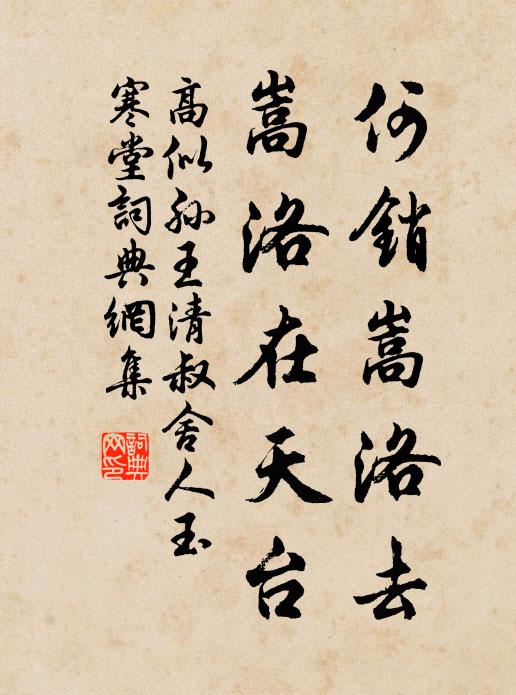 何銷嵩洛去
嵩洛在天台
高似孙王清叔舍人玉
寒堂詞典網集
詞典网印